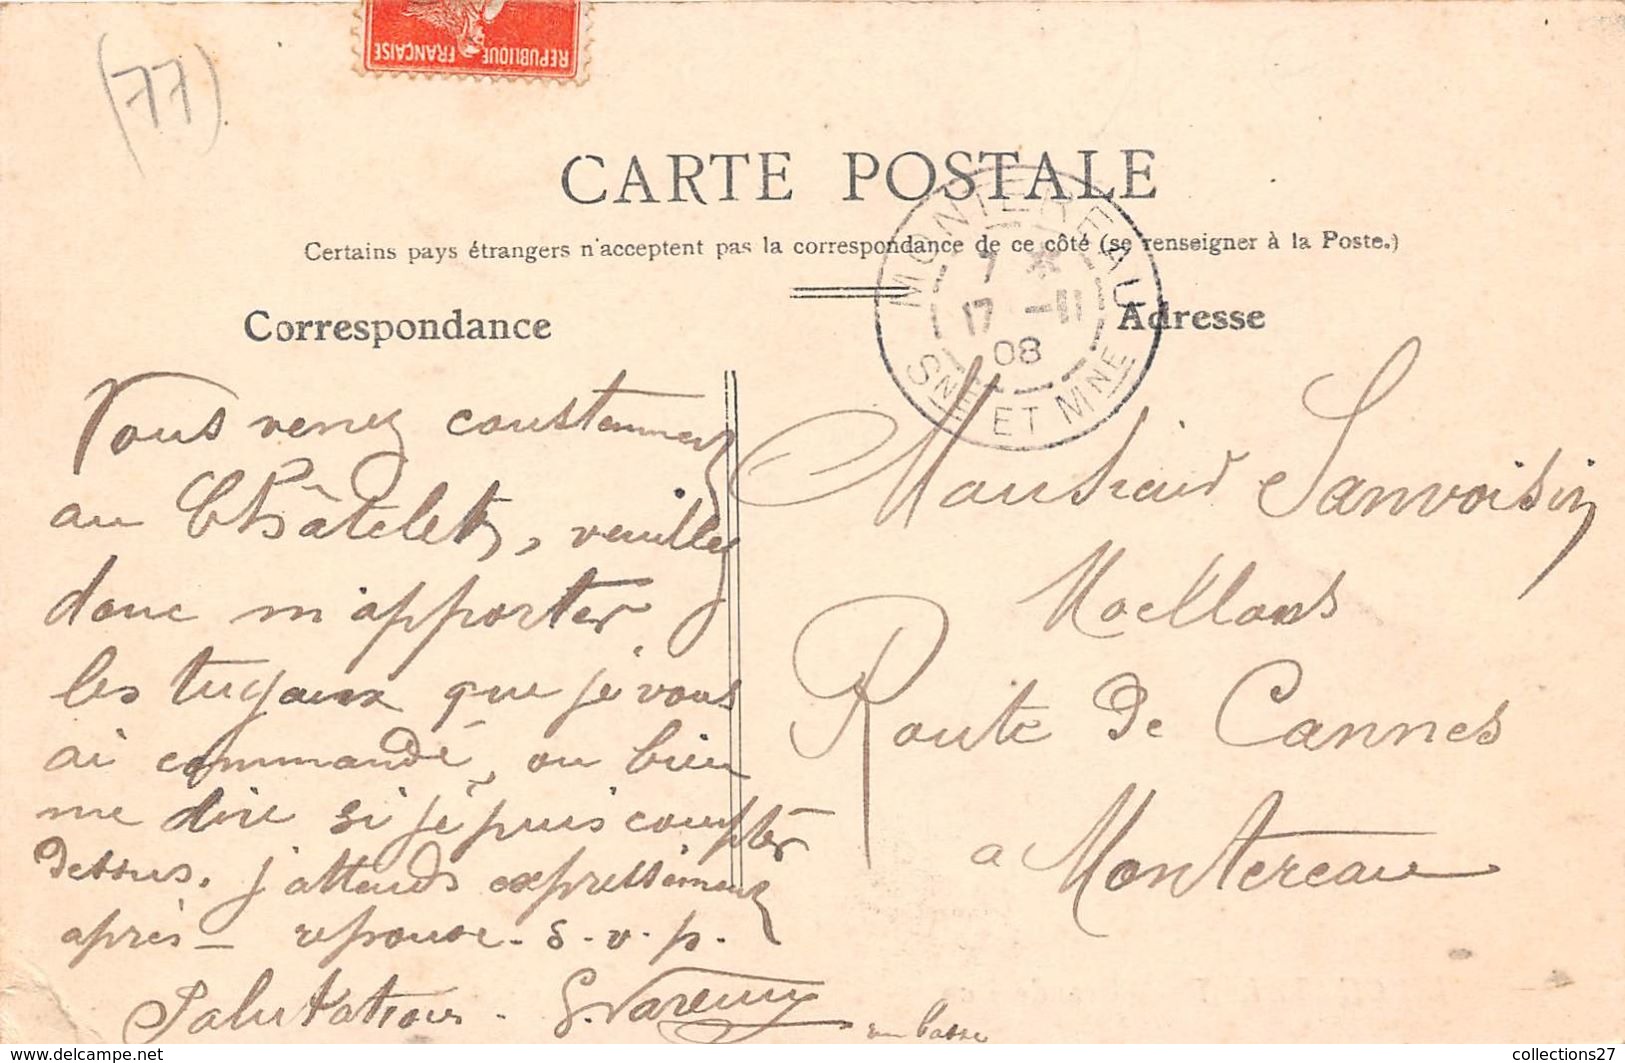 (77)
REPUBLIQUE FRANÇAISE
CARTE POSTALE
Certains pays étrangers n'acceptent pas la correspondance de ce côté (se renseigner à la Poste.)
MONTEREAU
7
17 -11
08
SNE ET MNE
Correspondance
Vous venez constemment
au Châtelet, veuillez
donc m'apporter
les tuyaux que je vous
ai commandé, ou bien
me dire si je puis compter
dessus. j'attends expressément
après - reponse. s. v. p.
Salutations. G. Varemy
Adresse
Monsieur Sanvoisin
Moellons
Route de Cannes
a Montereau
www.delcampe.net
collections27